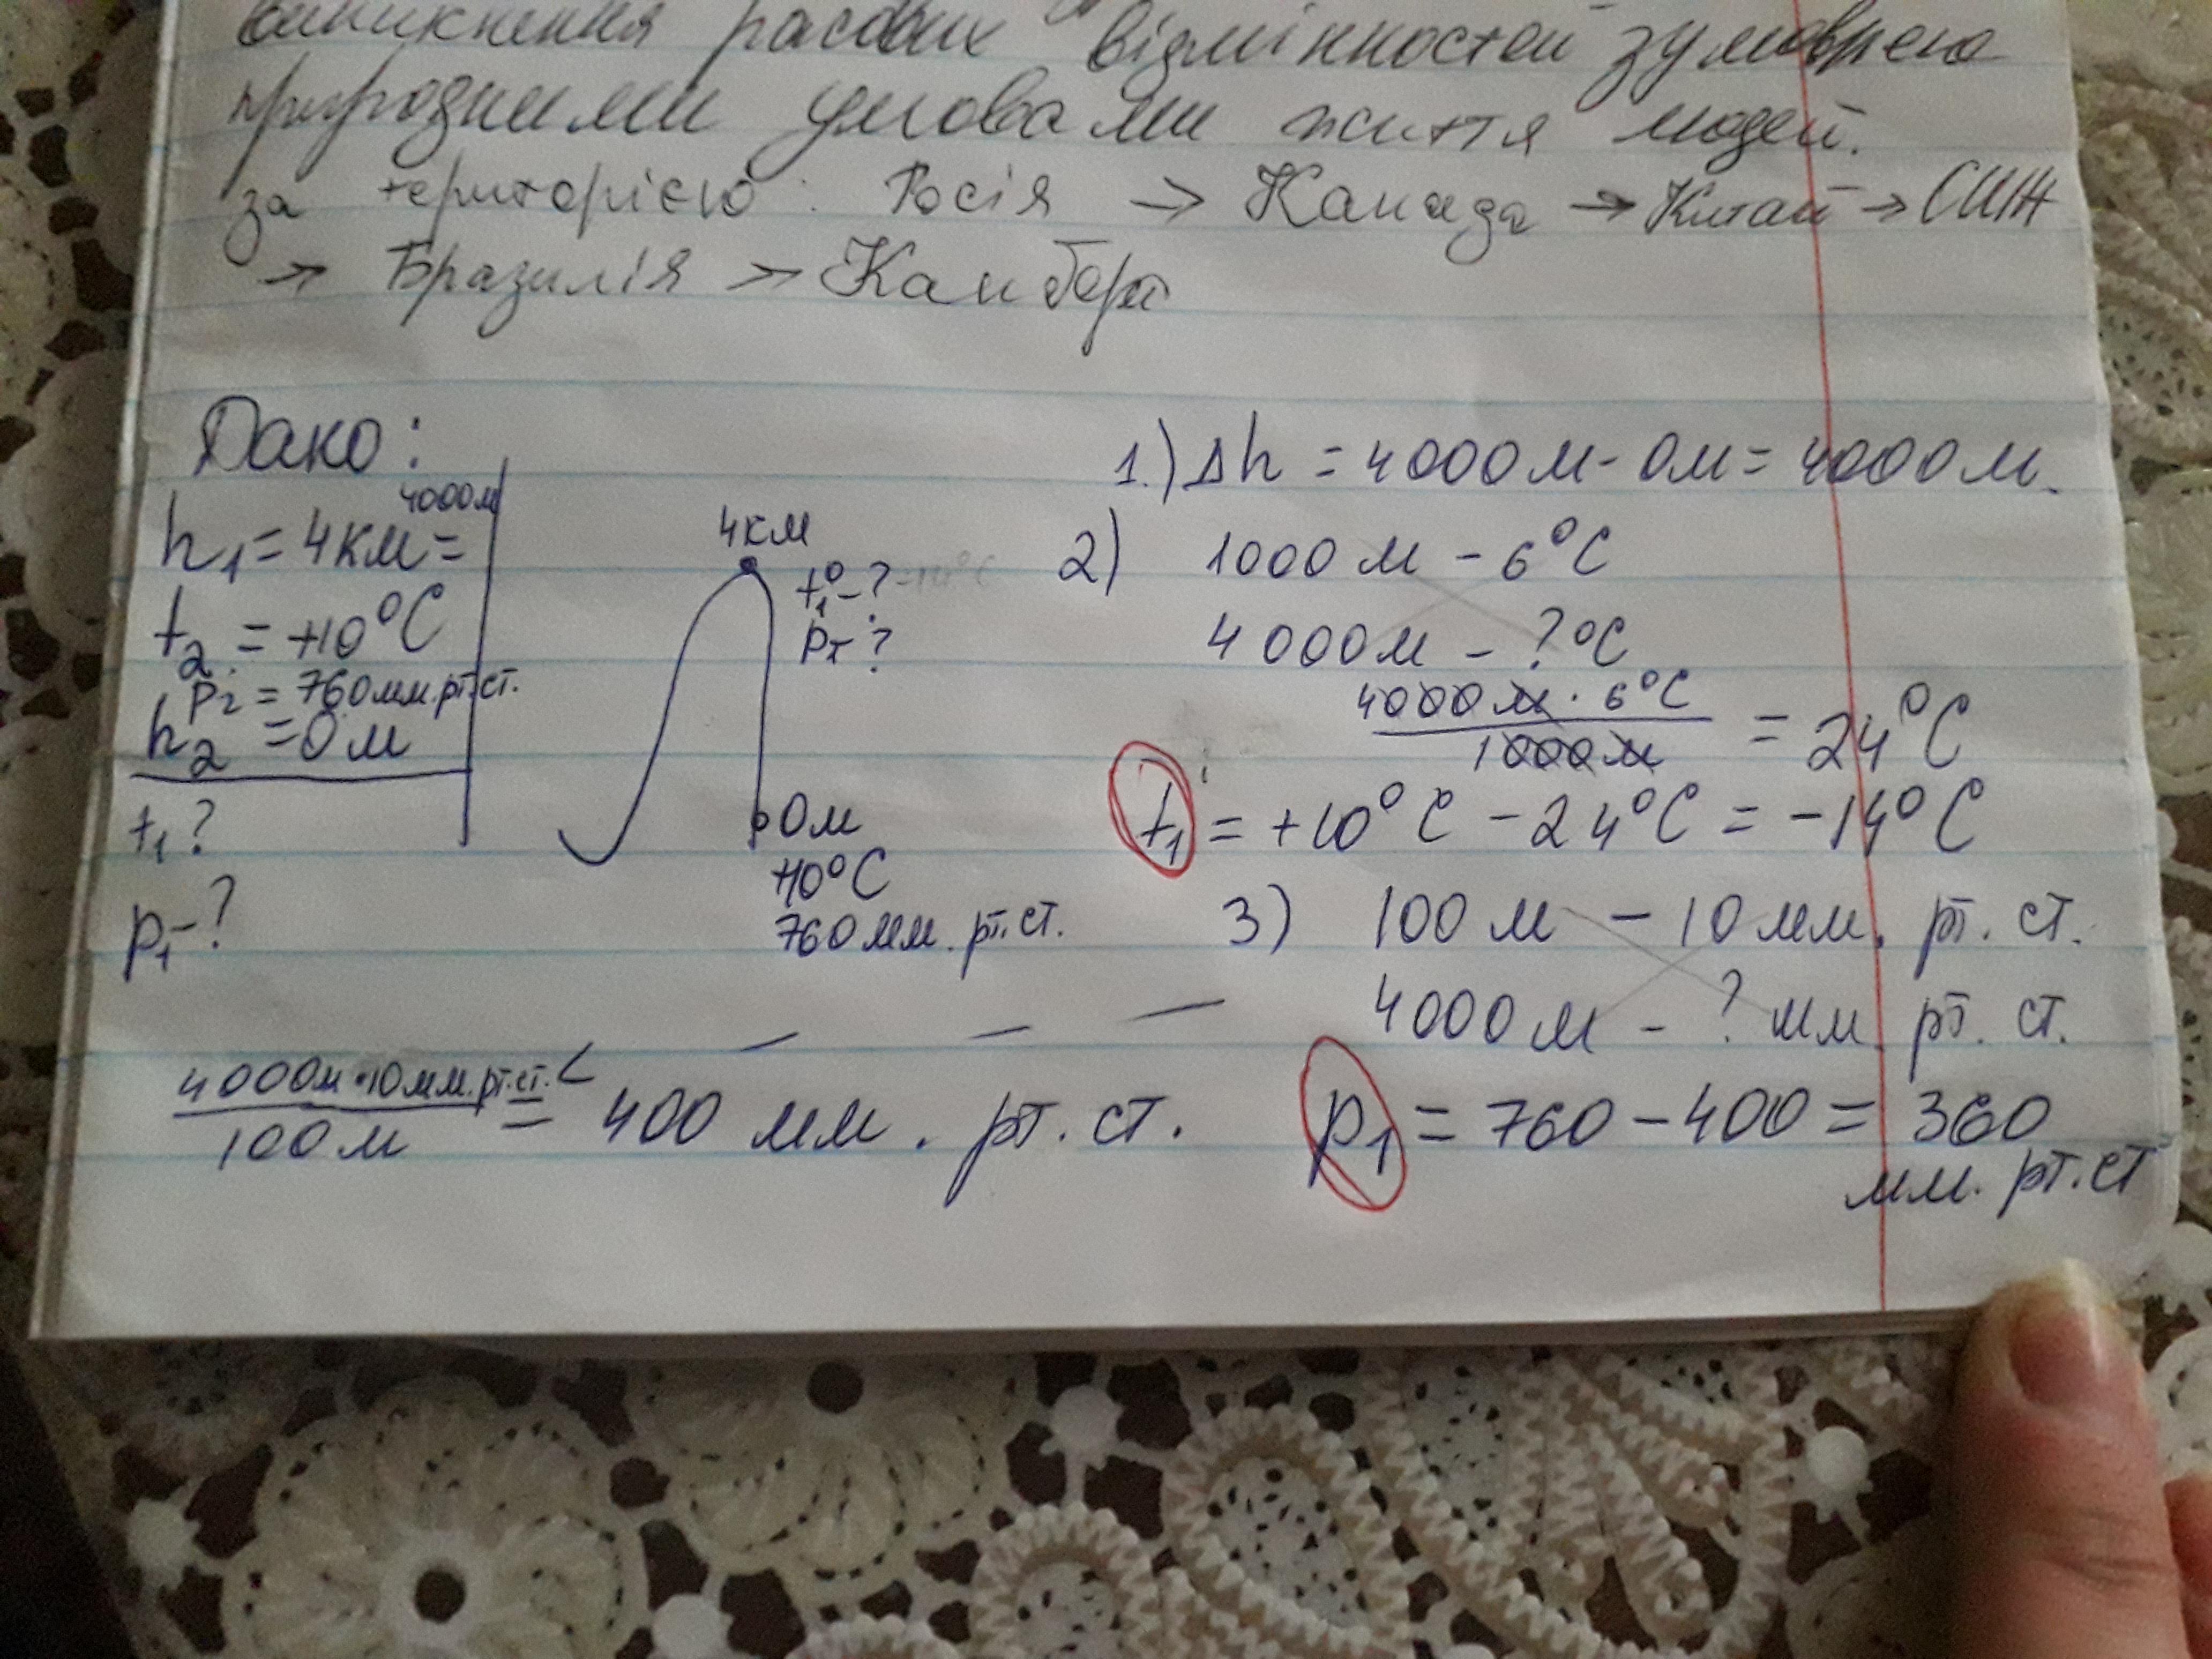 виникнення расових відмінностей зумовлено
природними умовами життя людей.
за територією: Росія → Канада → Китай → США
→ Бразилія →
Дано:
4000м
h₁ = 4км =
t₂ = +10°C
p₂ = 760мм.рт.ст.
h₂ = 0м
t₁ ?
p₁ - ?
4км
t₁° - ? = -14°C
p₁ - ?
0м
+10°C
760мм. рт. ст.
1.) Δh = 4000м - 0м = 4000м.
2) 1000м - 6°C
4000м - ? °C
4000м · 6°C
1000м
= 24°C
t₁ = +10°C - 24°C = -14°C
3) 100м - 10мм. рт. ст.
4000м - ? мм. рт. ст.
4000м · 10мм.рт.ст.
100м
= 400 мм. рт. ст.
p₁ = 760 - 400 = 360
мм. рт. ст